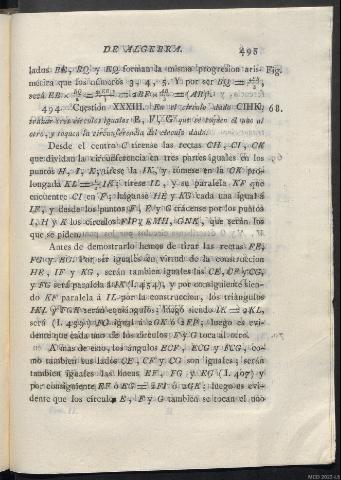 DE ALGEBRA. 495
lados BE, BQ y EQ forman la misma progresion aris- Fig.
mética que los números 3, 4, 5. Y por ser BQ =
será EB ×
494 Cuestion XXXIII. En el círculo dado CIHK, 68.
trazar tres círculos iguales E, F, G que se toquen el uno al
otro, y toquen la circunferencia del círculo dado.
Desde el centro C tírense las rectas CH, CI, CK
que dividan la circunferencia en tres partes iguales en los
puntos H, I, K; tírese la IK, y tómese en la CK pro-
longada KL = IK; tírese IL, y su paralela KF que
encuentre CI en F; háganse HE y KG cada una igual á
IF, y desde los puntos F, E y G trácense por los puntos
I, H y K los círculos FIP, EMH, GNK, que serán los
que se piden.
Antes de demostrarlo hemos de tirar las rectas FE,
FG y EG. Por ser iguales en virtud de la construccion
HE, IF y KG, serán tambien iguales las CE, CF y CG,
y FG será paralela á IK (I. 454), y por consiguiente sien-
do KF paralela á IL por la construccion, los triángulos
IKL y FGK serán equiángulos; luego siendo IK = 2KL,
será FG igual á 2GK ó 2FP; luego es evi-
dente que cada uno de los círculos F y G toca al otro.
A mas de esto, los ángulos ECF, ECG y FCG, co-
mo tambien sus lados CE, CF y CG son iguales; serán
tambien iguales las lineas EF, FG y EG (I. 407) y
por consiguiente EF ó EG = 2FI ó 2GK; luego es evi-
dente que los círculos E, F y G tambien se tocan el uno
MCD 2022-L5